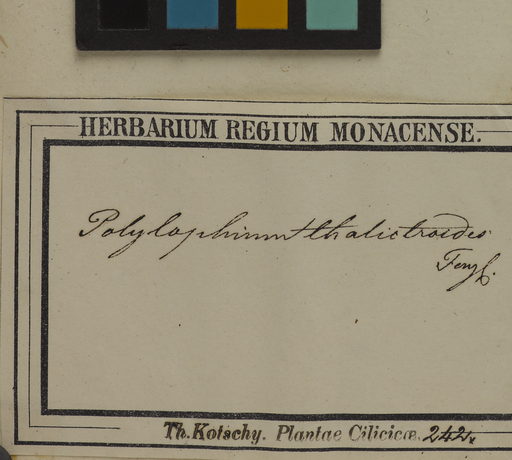 HERBARIUM REGIUM MONACENSE.
Polylophium thalictroides
Fenzl.
Th. Kotschy. Plantae Cilicicæ. 242.